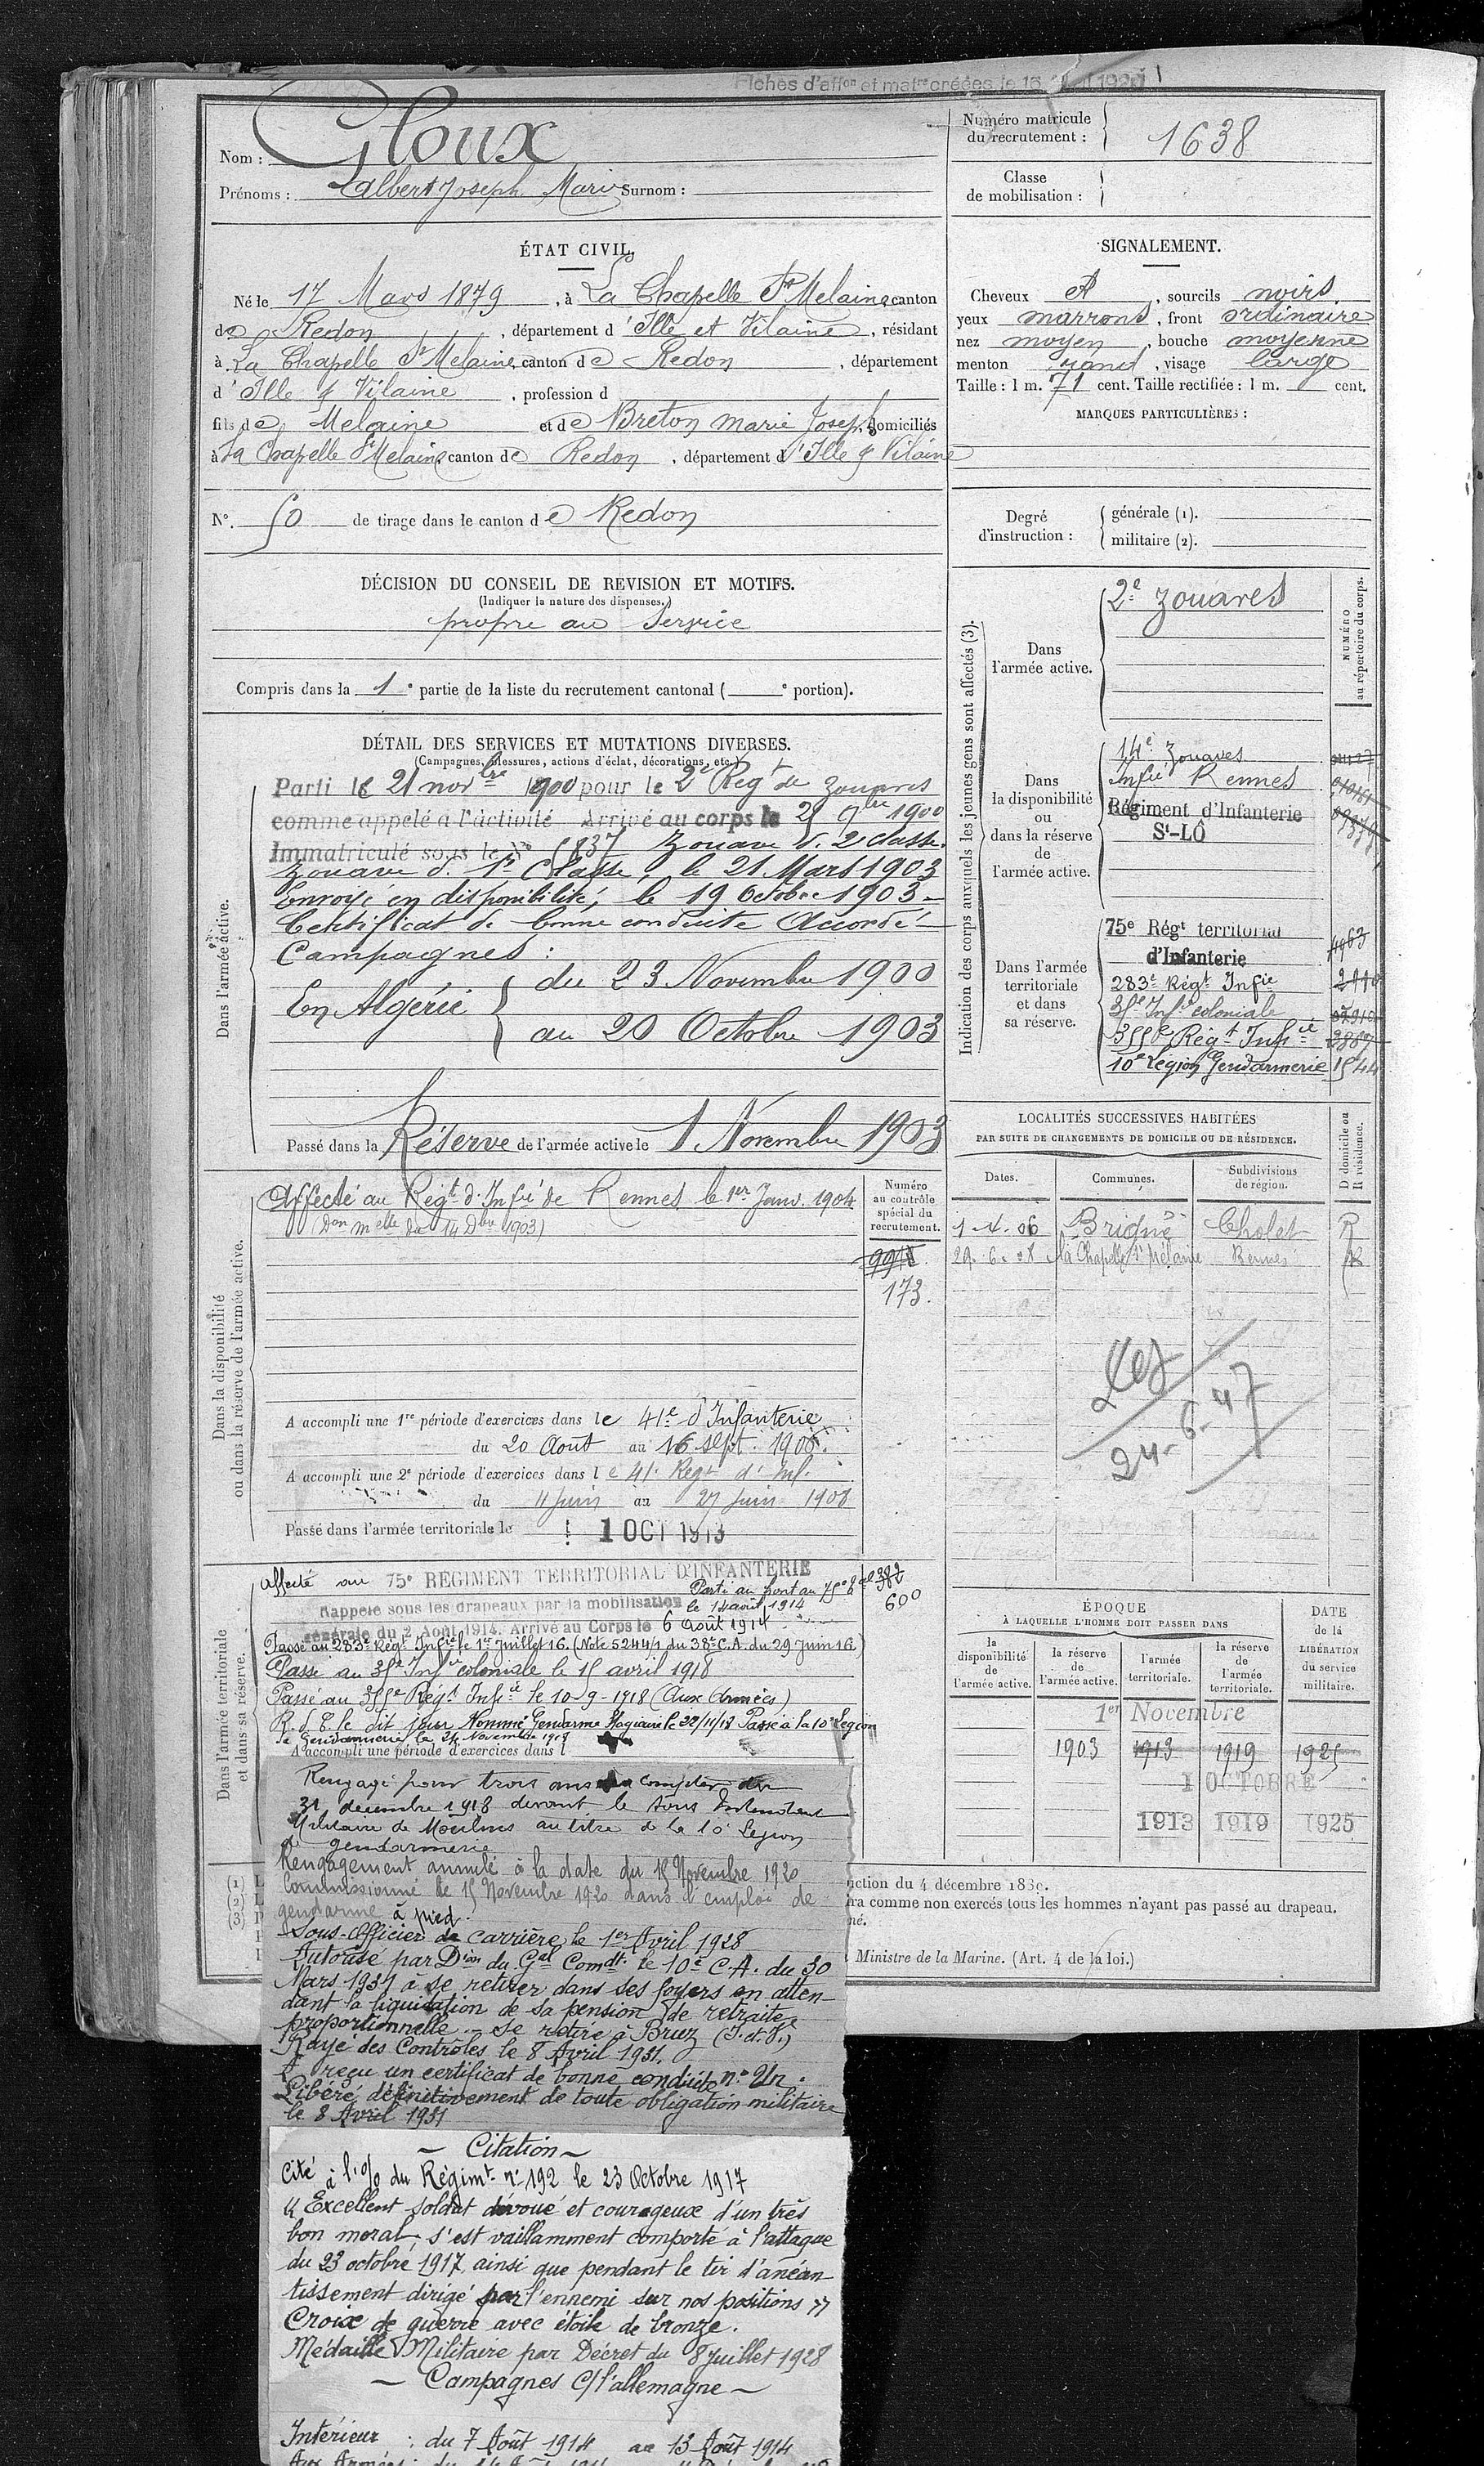 Fiches d'affon et matre créées le 16 1920
Nom : Gloux
Prénoms : Albert Joseph Marie Surnom :
Numéro matricule
du recrutement : 1638
Classe
de mobilisation :
ÉTAT CIVIL.
Né le 17 Mars 1879, à La Chapelle St Melaine canton
de Redon, département d'Ille et Vilaine, résidant
à La Chapelle St Melaine, canton de Redon, département
d'Ille & Vilaine, profession d
fils de Melaine et de Breton Marie Joseph, domiciliés
à La Chapelle St Melaine canton de Redon, département d'Ille & Vilaine
N°. 50 de tirage dans le canton de Redon
SIGNALEMENT.
Cheveux et, sourcils noirs.
yeux marrons, front ordinaire
nez moyen, bouche moyenne
menton rond, visage large
Taille : 1 m. 71 cent. Taille rectifiée : 1 m. cent.
MARQUES PARTICULIÈRES :
Degré
d'instruction :
générale (1).
militaire (2).
DÉCISION DU CONSEIL DE REVISION ET MOTIFS.
(Indiquer la nature des dispenses.)
propre au Service
Compris dans la 1e partie de la liste du recrutement cantonal ( e portion).
DÉTAIL DES SERVICES ET MUTATIONS DIVERSES.
(Campagnes, blessures, actions d'éclat, décorations, etc.)
Dans l'armée active.
Parti le 21 novbre 1900 pour le 2e Regt de Zouaves
comme appelé à l'activité Arrivé au corps le 25 9bre 1900
Immatriculé sous le N° 1837 Zouave d. 2e classe.
Zouave d. 1re Classe, le 21 Mars 1903
Envoyé en disponibilité, le 19 Octobre 1903 -
Certificat de bonne conduite Accordé -
Campagnes :
En Algérie
du 23 Novembre 1900
au 20 Octobre 1903
Passé dans la Réserve de l'armée active le 1 Novembre 1903
Indication des corps auxquels les jeunes gens sont affectés (3).
NUMÉRO
au répertoire du corps.
Dans
l'armée active.
2e Zouaves
Dans
la disponibilité
ou
dans la réserve
de
l'armée active.
14e Zouaves
Infie Rennes
Régiment d'Infanterie
St-LÔ
Dans l'armée
territoriale
et dans
sa réserve.
75e Régt territorial
d'Infanterie
4963
283e Régt Infie
35e Infie coloniale
355e Régt Infie 2889
10e Légion Gendarmerie 1544
Dans la disponibilité
ou dans la réserve de l'armée active.
Affecté au Régt d'Infie de Rennes le 1er Janv. 1904
(Don mlle du 14 Dbre 1903)
Numéro
au contrôle
spécial du
recrutement.
173.
A accompli une 1re période d'exercices dans le 41e d'Infanterie
du 20 Août au 16 sept. 1906.
A accompli une 2e période d'exercices dans le 41e Regt d'Inf.
du 11 Juin au 27 Juin 1908
Passé dans l'armée territoriale le 1 OCT 1913
LOCALITÉS SUCCESSIVES HABITÉES
PAR SUITE DE CHANGEMENTS DE DOMICILE OU DE RÉSIDENCE.
Dates. Communes. Subdivisions
de région.
D domicile ou
R résidence.
1-4-06 Brigné Cholet R
29-6-08 La Chapelle St Mélaine Rennes R
24-6-47
Dans l'armée territoriale
et dans sa réserve.
Affecté au 75e REGIMENT TERRITORIAL D'INFANTERIE
Parti au front au 75e tal
le 14 août 1914
600
Rappelé sous les drapeaux par la mobilisation
générale du 2 Août 1914. Arrivé au Corps le 6 Août 1914
Passé au 283e Régt Infie le 1er Juillet 16. (Note 5244/1 du 38e C.A. du 29 Juin 16)
Passé au 35e Infie coloniale le 15 avril 1918
Passé au 355e Régt Infie le 10-9-1918 (Aux Armées)
R.d.C. le dit jour Nommé Gendarme Stagiaire le 22/11/18 Passé à la 10e Légion
de Gendarmerie le 24 Novembre 1918
A accompli une période d'exercices dans l
ÉPOQUE
À LAQUELLE L'HOMME DOIT PASSER DANS
DATE
de la
LIBÉRATION
du service
militaire.
la
disponibilité
de
l'armée active.
la réserve
de
l'armée active.
l'armée
territoriale.
la réserve
de
l'armée
territoriale.
1er Novembre
1903 1913 1919 1925
1 OCTOBRE
1913 1919 1925
Rengagé pour trois ans à compter du
31 décembre 1918 devant le sous Intendant
Militaire de Moulins au titre de la 10e Légion
de gendarmerie
Rengagement annulé à la date du 15 Novembre 1920
Commissionné le 15 Novembre 1920 dans l'emploi de
gendarme à pied.
Sous-Officier de carrière, le 1er Avril 1928
Autorisé par Don du Gal Comdt. le 10e C.A. du 30
Mars 1931 à se retirer dans ses foyers en atten-
dant la liquidation de sa pension de retraite
proportionnelle. - Se retire à Bruz (I. et V.)
Rayé des Contrôles le 8 Avril 1931.
A reçu un certificat de bonne conduite n° Un.
Libéré définitivement de toute obligation militaire
le 8 Avril 1931
(1)
(2)
(3)
ction du 4 décembre 188
ra comme non exercés tous les hommes n'ayant pas passé au drapeau.
né.
Ministre de la Marine. (Art. 4 de la loi.)
- Citation -
Cité à l'o/o du Régimt. n° 192 le 23 Octobre 1917
"Excellent soldat dévoué et courageux d'un très
bon moral, s'est vaillamment comporté à l'attaque
du 23 octobre 1917, ainsi que pendant le tir d'anéan-
tissement dirigé par l'ennemi sur nos positions"
Croix de guerre avec étoile de bronze.
Médaille Militaire par Décret du 8 Juillet 1928
- Campagnes C/ l'allemagne -
Intérieur : du 7 Août 1914 au 13 Août 1914